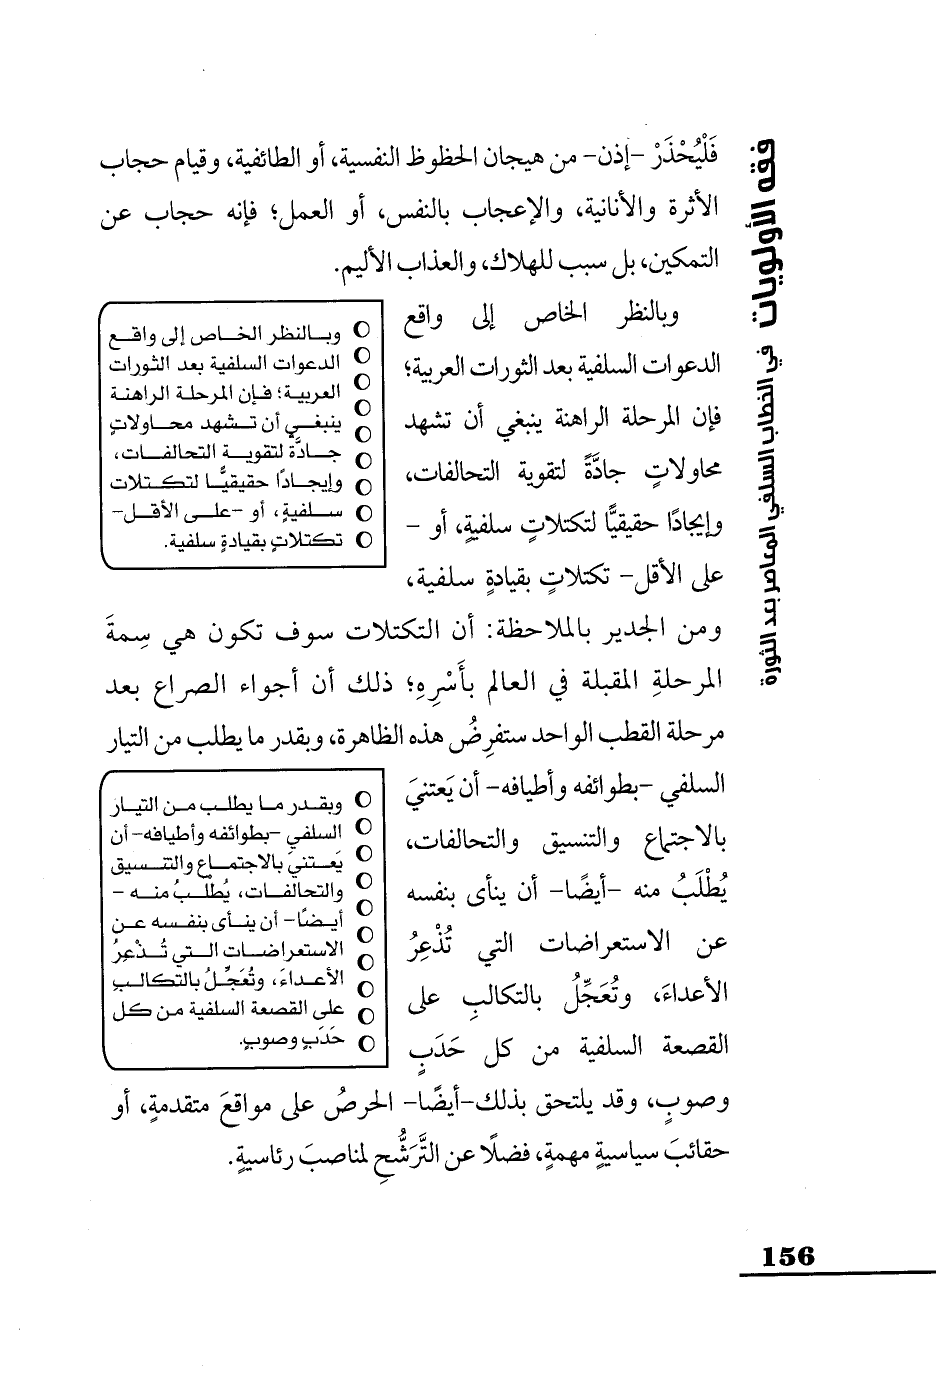 فقه الأولويات في الخطاب السلفي المعاصر بعد الثورة
فَلْيُحْذَرْ -إذن- من هيجان الحظوظ النفسية، أو الطائفية، وقيام حجاب
الأثرة والأنانية، والإعجاب بالنفس، أو العمل؛ فإنه حجاب عن
التمكين، بل سبب للهلاك، والعذاب الأليم.
وبالنظر الخاص إلى واقع
الدعوات السلفية بعد الثورات العربية؛
فإن المرحلة الراهنة ينبغي أن تشهد
محاولاتٍ جادَّةً لتقوية التحالفات،
وإيجادًا حقيقيًّا لتكتلاتٍ سلفيةٍ، أو -
على الأقل- تكتلاتٍ بقيادةٍ سلفية،
وبالنظر الخاص إلى واقع
الدعوات السلفية بعد الثورات
العربية؛ فإن المرحلة الراهنة
ينبغي أن تشهد محاولاتٍ
جادَّة لتقوية التحالفات،
وإيجادًا حقيقيًّا لتكتلات
سلفيةٍ، أو -على الأقل-
تكتلاتٍ بقيادةٍ سلفية.
ومن الجدير بالملاحظة: أن التكتلات سوف تكون هي سِمةَ
المرحلةِ المقبلة في العالم بأَسْرِهِ؛ ذلك أن أجواء الصراع بعد
مرحلة القطب الواحد ستفرِضُ هذه الظاهرة، وبقدر ما يطلب من التيار
السلفي -بطوائفه وأطيافه- أن يَعتنيَ
بالاجتماع والتنسيق والتحالفات،
يُطْلَبُ منه -أيضًا- أن ينأى بنفسه
عن الاستعراضات التي تُذْعِرُ
الأعداءَ، وتُعَجِّلُ بالتكالبِ على
القصعة السلفية من كل حَدَبٍ
وبقدر ما يطلب من التيار
السلفي -بطوائفه وأطيافه- أن
يَعتنيَ بالاجتماع والتنسيق
والتحالفات، يُطلبُ منه -
أيضًا- أن ينأى بنفسه عن
الاستعراضات التي تُذْعِرُ
الأعداءَ، وتُعَجِّلُ بالتكالبِ
على القصعة السلفية من كل
حَدَبٍ وصوبٍ.
وصوبٍ، وقد يلتحق بذلك-أيضًا- الحرصُ على مواقعَ متقدمةٍ، أو
حقائبَ سياسيةٍ مهمةٍ، فضلًا عن التَّرَشُّحِ لمناصبَ رئاسيةٍ.
156